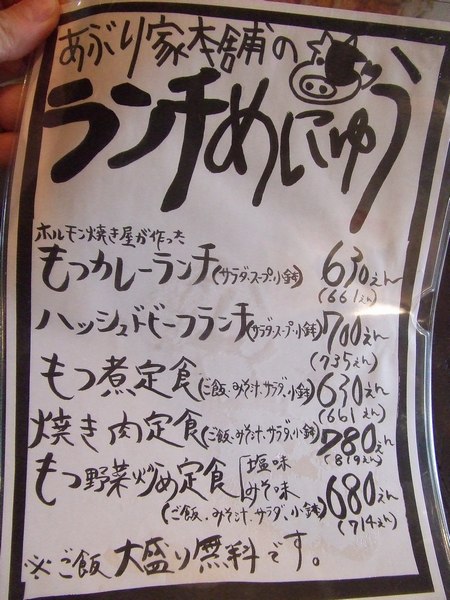 あぶり家本舗の
ランチめにゅう
ホルモン焼き屋が作った
もつカレーランチ(サラダ・スープ・小鉢) 630えん
(661えん)
ハッシュドビーフランチ(サラダ・スープ・小鉢) 700えん
(735えん)
もつ煮定食(ご飯、みそ汁、サラダ、小鉢) 630えん
(661えん)
焼き肉定食(ご飯、みそ汁、サラダ、小鉢) 780えん
(819えん)
もつ野菜炒め定食 塩味 みそ味 680えん
(ご飯、みそ汁、サラダ、小鉢) (714えん)
※ご飯 大盛り無料です。